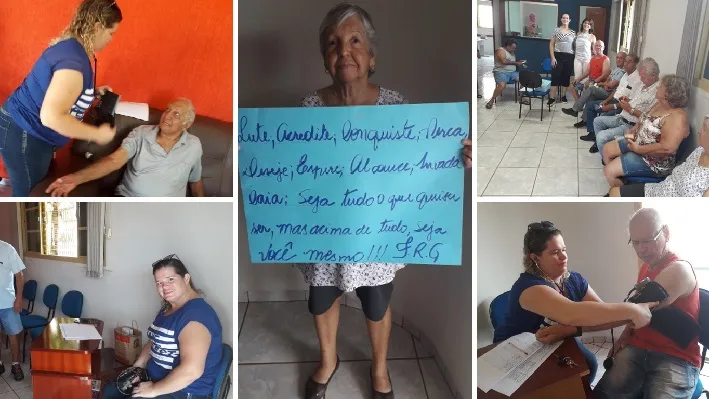 Lute, Acredite, Conquiste, Perca
Deseje; Espere; Alcance, Invada
Caia; Seja tudo o que quiser
ser, mas acima de tudo, seja
você mesmo!!! F.R.G